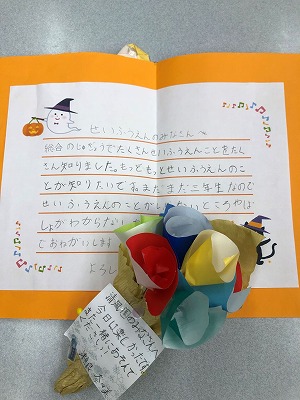 せいふうえんのみなさんへ
総合のじゅぎょうでたくさんせいふうえんことをたく
さん知りました。もっともっとせいふうえんのこ
とが知りたいです。まだまだ三年生なので
せいふうえんのことがしりたいところやば
しょがわからない
でおねがいします
よろし
清風園のみなさんへ
今日は楽しかったです。
また一緒にあそんで
ください!